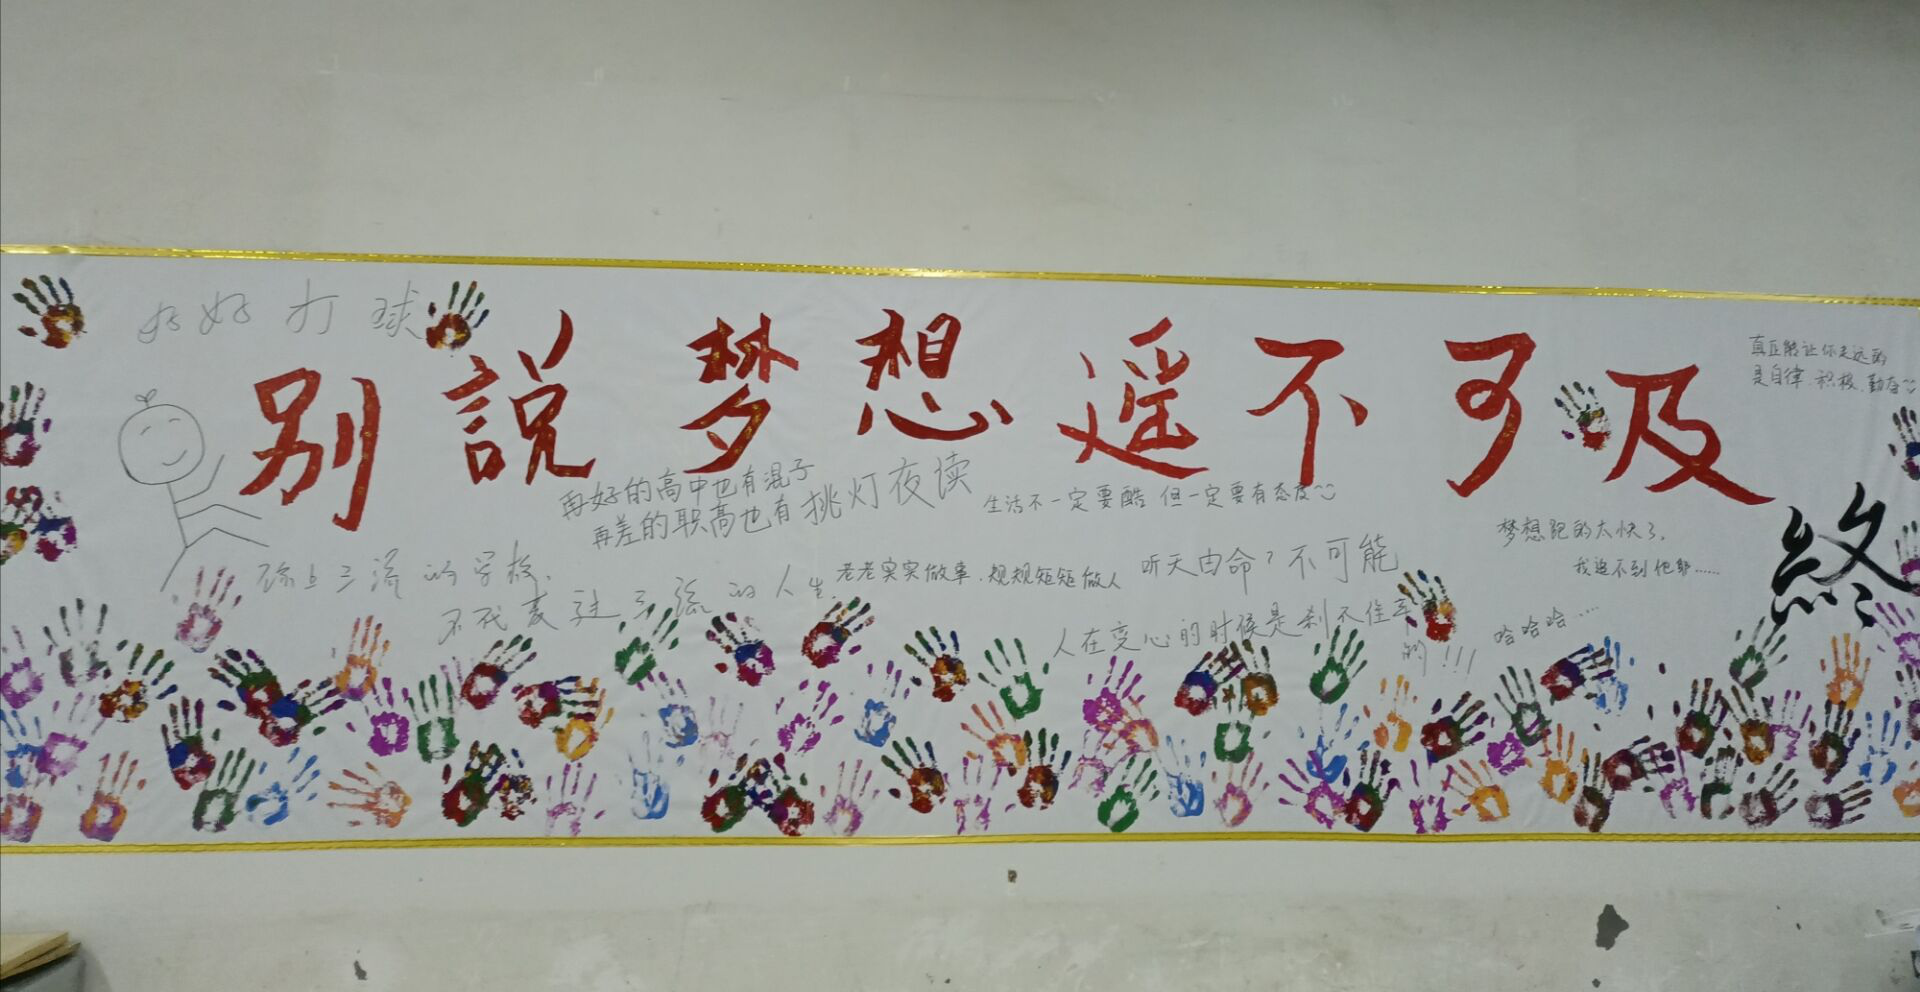 好好打球
别說梦想遥不可及
真正能让你走远的
是自律、积极、勤奋
再好的高中也有混子
再差的职高也有挑灯夜读
生活不一定要酷 但一定要有态度
梦想跑的太快了，
我追不到他耶……
终
上三流的学校，
不代表过三流的人生。
老老实实做事，规规矩矩做人
听天由命？不可能
人在变心的时候是刹不住车
的!!!
哈哈哈……